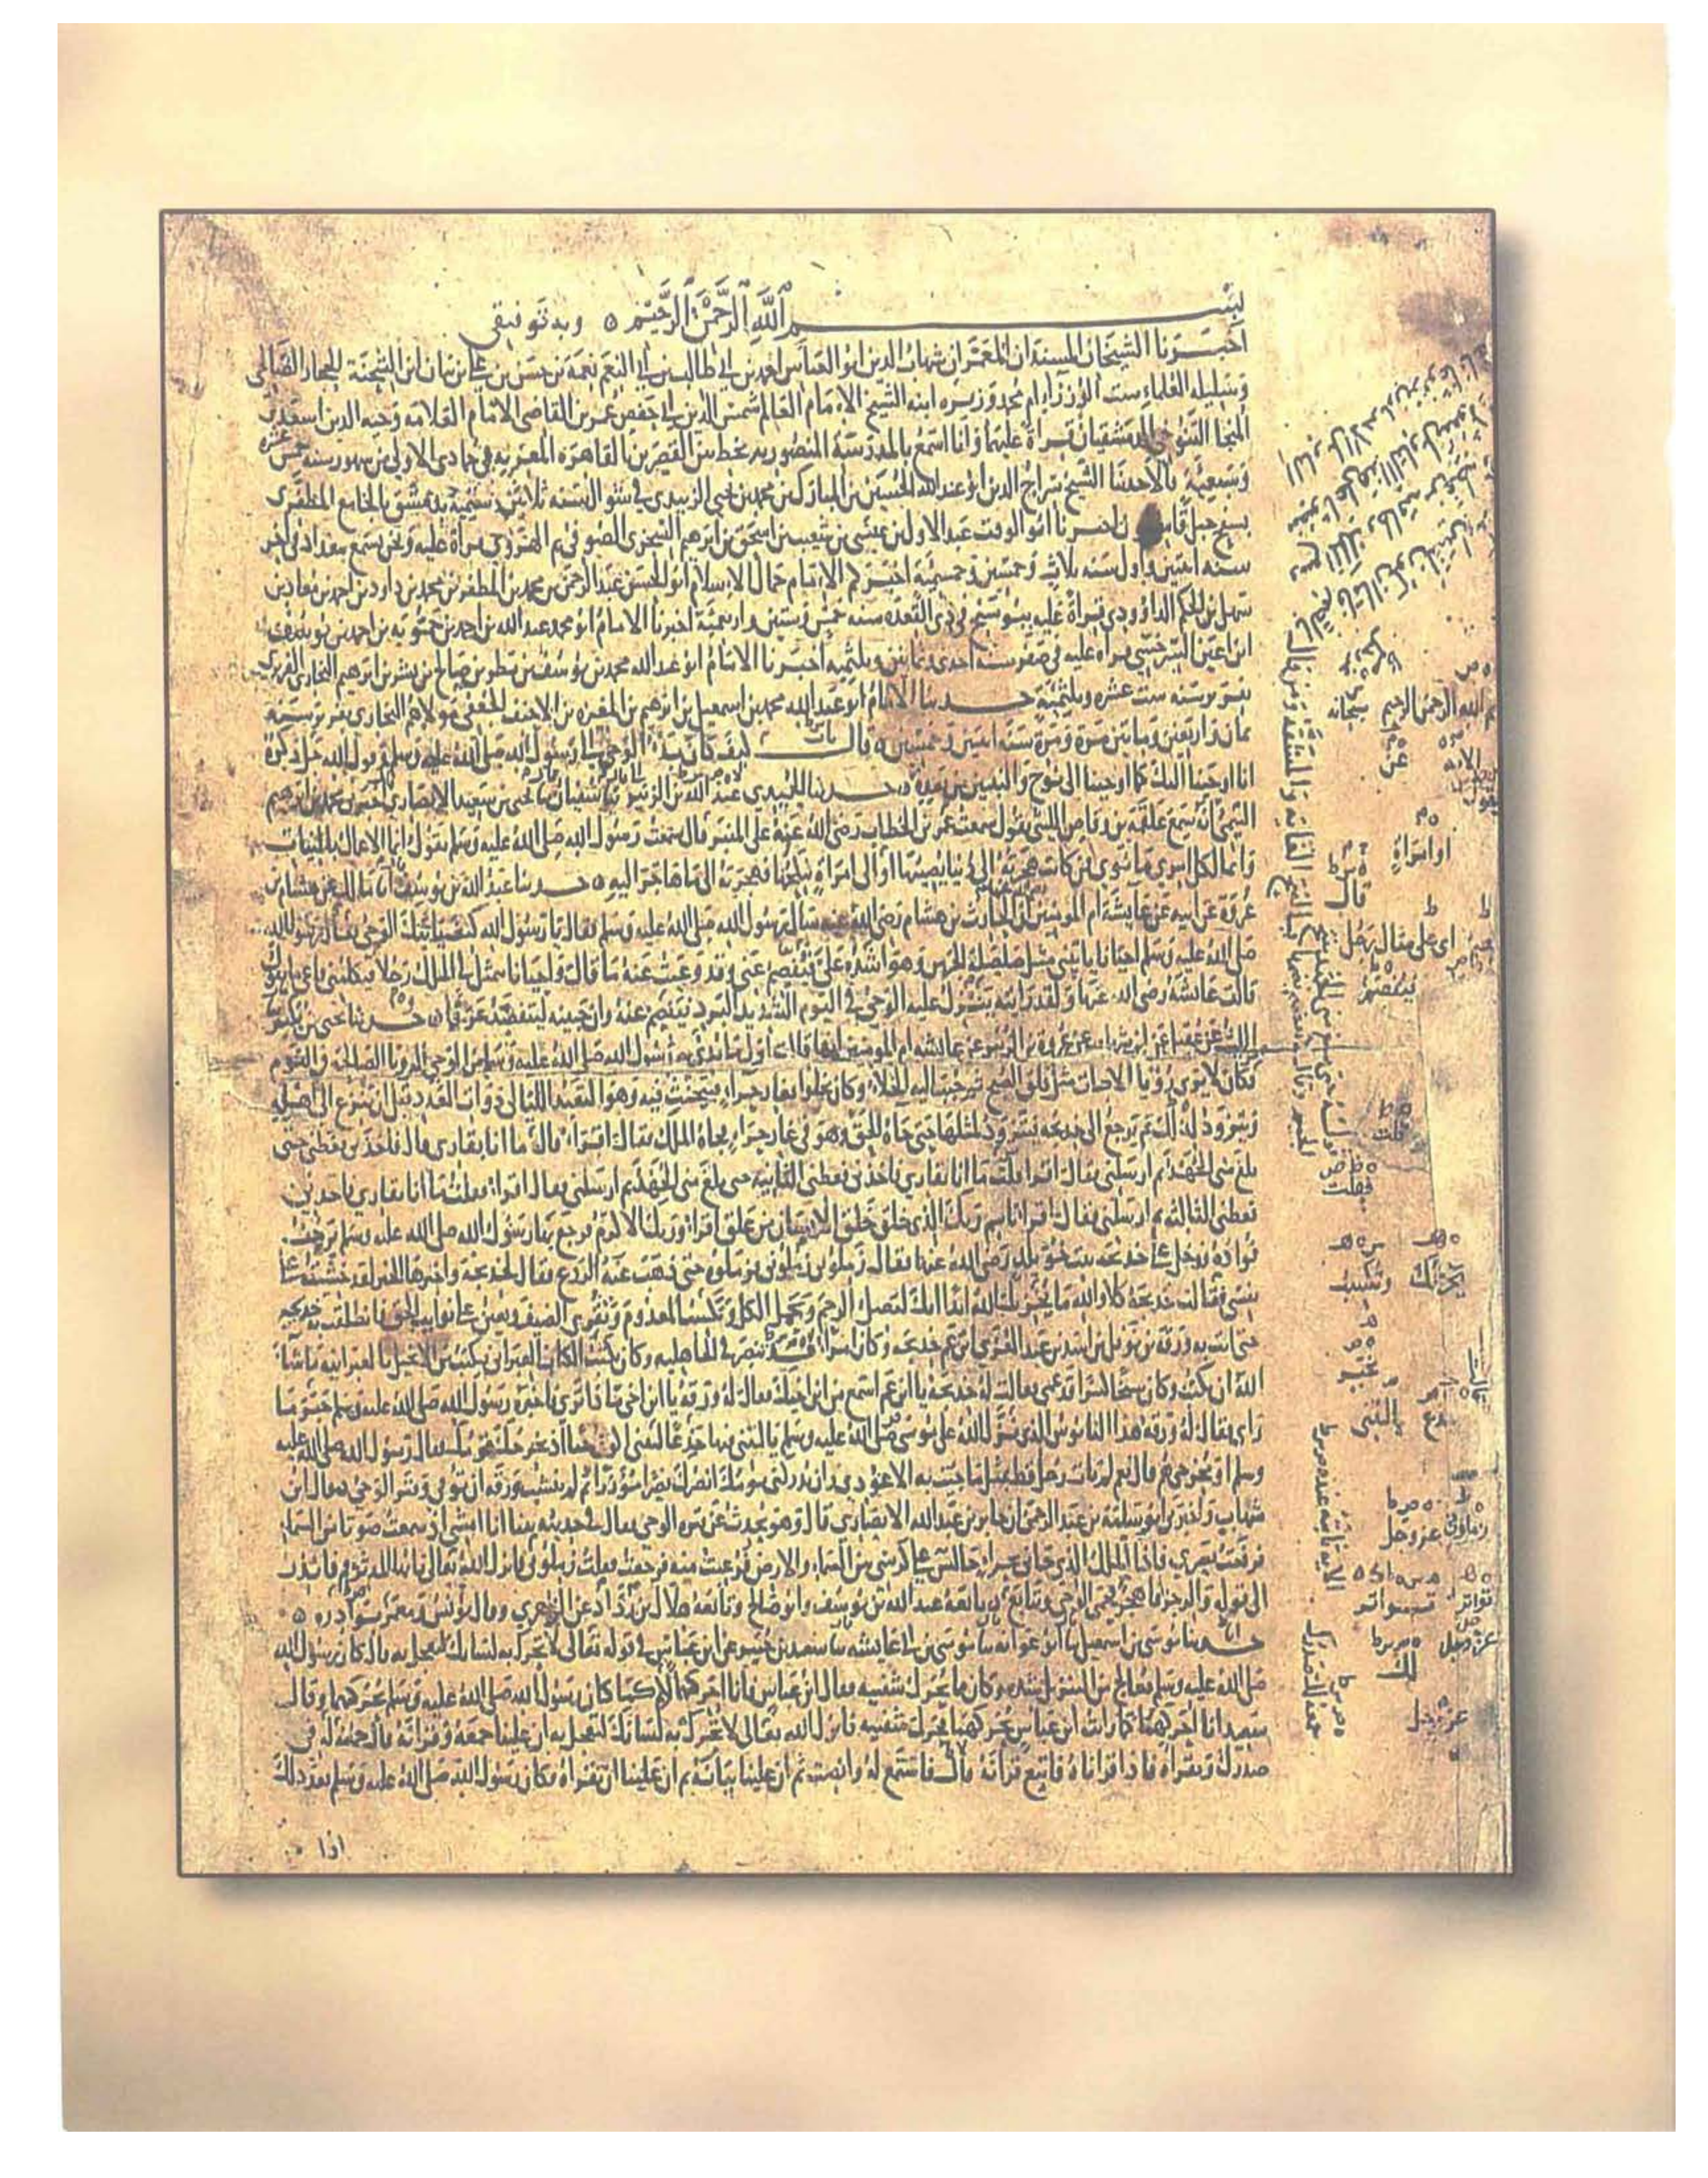 بسم الله الرحمن الرحيم ٥ وبه توفيقي
اخبرنا الشيخان المسندان المعمران شهاب الدين ابو العباس احمد بن ابي طالب بن ابي النعم نعمة بن حسن بن علي بن بيان ابن الشحنة الحجار الصالحي
وسليلة العلماء ست الوزراء ام محمد وزيره ابنه الشيخ الامام العالم شمس الدين ابي حفص عمر بن القاضي الامام العلامه وجيه الدين اسعد بن
المنجا التنوخي الدمشقيان قراة عليهما وانا اسمع بالمدرسة المنصوريه بخط بين القصرين بالقاهره المعزيه في جمادى الاولى من شهور سنه خمس عشره
وسبعمية قالا حدثنا الشيخ سراج الدين ابو عبد الله الحسين بن المبارك بن محمد بن يحيى الزبيدي في شوال سنه ثلاثين وستمية بدمشق بالجامع المظفري
بسفح جبل قاسيون اخبرنا ابو الوقت عبد الاول بن عيسى بن شعيب بن اسحق بن ابرهيم السجزي الصوفي ثم الهروي قراة عليه ونحن نسمع ببغداد في اخر
سنه اثنتين واول سنه ثلاث وخمسين وخمسمية اخبركم الامام جمال الاسلام ابو الحسن عبد الرحمن بن محمد بن المظفر بن محمد بن داود بن احمد بن معاذ بن
سهل بن الحكم الداوودي قراة عليه ببوشنج في ذي القعده سنه خمس وستين واربعمية اخبرنا الامام ابو محمد عبد الله بن احمد بن حمويه بن احمد بن يوسف
ابن اعين السرخسي قراة عليه في صفر سنه احدى وثمانين وثلثميه اخبرنا الامام ابو عبد الله محمد بن يوسف بن مطر بن صالح بن بشر بن ابرهيم البخاري الفربري
بفربر سنه ست عشره وثلثميه حدثنا الامام ابو عبد الله محمد بن اسمعيل بن ابرهيم بن المغيره بن الاحنف الجعفي مولاهم البخاري بفربر سنه
ثمان واربعين ومايتين مرة ومرة سنه اثنتين وخمسين ٥ قال باب كيف كان بدء الوحي الى رسول الله صلى الله عليه وسلم وقول الله جل ذكره
انا اوحينا اليك كما اوحينا الى نوح والنبيين من بعده ٥ حدثنا الحميدي عبد الله بن الزبير ثنا سفيان ثنا يحيى بن سعيد الانصاري اخبرني محمد بن ابرهيم
التيمي انه سمع علقمه بن وقاص الليثي يقول سمعت عمر بن الخطاب رضي الله عنه على المنبر قال سمعت رسول الله صلى الله عليه وسلم يقول انما الاعمال بالنيات
وانما لكل امرئ ما نوى فمن كانت هجرته الى دنيا يصيبها او الى امراة ينكحها فهجرته الى ما هاجر اليه ٥ حدثنا عبد الله بن يوسف انا مالك عن هشام بن
عروة عن ابيه عن عايشة ام المومنين ان الحارث بن هشام رضي الله عنه سال رسول الله صلى الله عليه وسلم فقال يا رسول الله كيف ياتيك الوحي فقال رسول الله
صلى الله عليه وسلم احيانا ياتيني مثل صلصلة الجرس وهو اشده علي فيفصم عني وقد وعيت عنه ما قال واحيانا يتمثل لي الملك رجلا فيكلمني فاعي ما يقول
قالت عائشة رضي الله عنها ولقد رايته ينزل عليه الوحي في اليوم الشديد البرد فيفصم عنه وان جبينه ليتفصد عرقا ٥ حدثنا يحيى بن بكير
الليث عن عقيل عن ابن شهاب عن عروه بن الزبير عن عائشه ام المومنين انها قالت اول ما بدئ به رسول الله صلى الله عليه وسلم من الوحي الرويا الصالحة في النوم
فكان لا يرى رويا الا جات مثل فلق الصبح ثم حبب اليه الخلاء وكان يخلوا بغار حراء فيتحنث فيه وهو التعبد الليالي ذوات العدد قبل ان ينزع الى اهله
ويتزود لذلك ثم يرجع الى خديجه فيتزود لمثلها حتى جاه الحق وهو في غار حراء فجاه الملك فقال اقرا قال ما انا بقاري قال فاخذني فغطني حتى
بلغ مني الجهد ثم ارسلني فقال اقرا قلت ما انا بقاري فاخذني فغطني الثانيه حتى بلغ مني الجهد ثم ارسلني فقال اقرا فقلت ما انا بقاري فاخذني
فغطني الثالثه ثم ارسلني فقال اقرا باسم ربك الذي خلق خلق الانسان من علق اقرا وربك الاكرم فرجع بها رسول الله صلى الله عليه وسلم يرجف
فواده فدخل على خديجه بنت خويلد رضي الله عنها فقال زملوني زملوني فزملوه حتى ذهب عنه الروع فقال لخديجة واخبرها الخبر لقد خشيت على
نفسي فقالت خديجة كلا والله ما يخزيك الله ابدا انك لتصل الرحم وتحمل الكل وتكسب المعدوم وتقري الضيف وتعين على نوايب الحق فانطلقت به خديجه
حتى اتت به ورقة بن نوفل بن اسد بن عبد العزى ابن عم خديجه وكان امرا قد تنصر في الجاهليه وكان يكتب الكتاب العبراني فيكتب من الانجيل بالعبرانيه ما شا
الله ان يكتب وكان شيخا كبيرا قد عمي فقالت له خديجه يا ابن عم اسمع من ابن اخيك فقال له ورقة يا ابن اخي ماذا ترى فاخبره رسول الله صلى الله عليه وسلم خبر ما
راى فقال له ورقة هذا الناموس الذي نزل الله على موسى صلى الله عليه وسلم يا ليتني فيها جذعا ليتني اكون حيا اذ يخرجك قومك فقال رسول الله صلى الله عليه
وسلم او مخرجي هم قال نعم لم يات رجل قط بمثل ما جيت به الا عودي وان يدركني يومك انصرك نصرا موزرا ثم لم ينشب ورقه ان توفي وفتر الوحي قال ابن
شهاب واخبرني ابو سلمة بن عبد الرحمن ان جابر بن عبد الله الانصاري قال وهو يحدث عن فتره الوحي فقال في حديثه بينا انا امشي اذ سمعت صوتا من السماء
فرفعت بصري فاذا الملك الذي جاني بحراء جالس على كرسي بين السماء والارض فرعبت منه فرجعت فقلت زملوني فانزل الله تعالى يا ايها المدثر قم فانذر
الى قوله والرجز فاهجر فحمي الوحي وتتابع ٥ تابعه عبد الله بن يوسف وابو صالح وتابعه هلال بن رداد عن الزهري وقال يونس ومعمر بوادره ٥
حدثنا موسى بن اسمعيل ثنا ابو عوانه ثنا موسى بن ابي عايشه ثنا سعيد بن جبير عن ابن عباس في قوله تعالى لا تحرك به لسانك لتعجل به قال كان رسول الله
صلى الله عليه وسلم يعالج من التنزيل شده وكان مما يحرك شفتيه فقال ابن عباس فانا احركهما لك كما كان رسول الله صلى الله عليه وسلم يحركهما وقال
سعيد انا احركهما كما رايت ابن عباس يحركهما فحرك شفتيه فانزل الله تعالى لا تحرك به لسانك لتعجل به ان علينا جمعه وقرانه قال جمعه له في
صدرك وتقراه فاذا قراناه فاتبع قرانه قال فاستمع له وانصت ثم ان علينا بيانه ثم ان علينا ان تقراه فكان رسول الله صلى الله عليه وسلم بعد ذلك
اذا
بسم الله الرحمن الرحيم
سبحانه
عز وجل
الايه
او امراة
قال
اي على مثال رجل
قلت
فقلت
يحزنك
وتكسب
بخبر
يا ليتني
عز وجل
تواتر
عز وجل
لك
جمعه لك صدرك
عز وجل